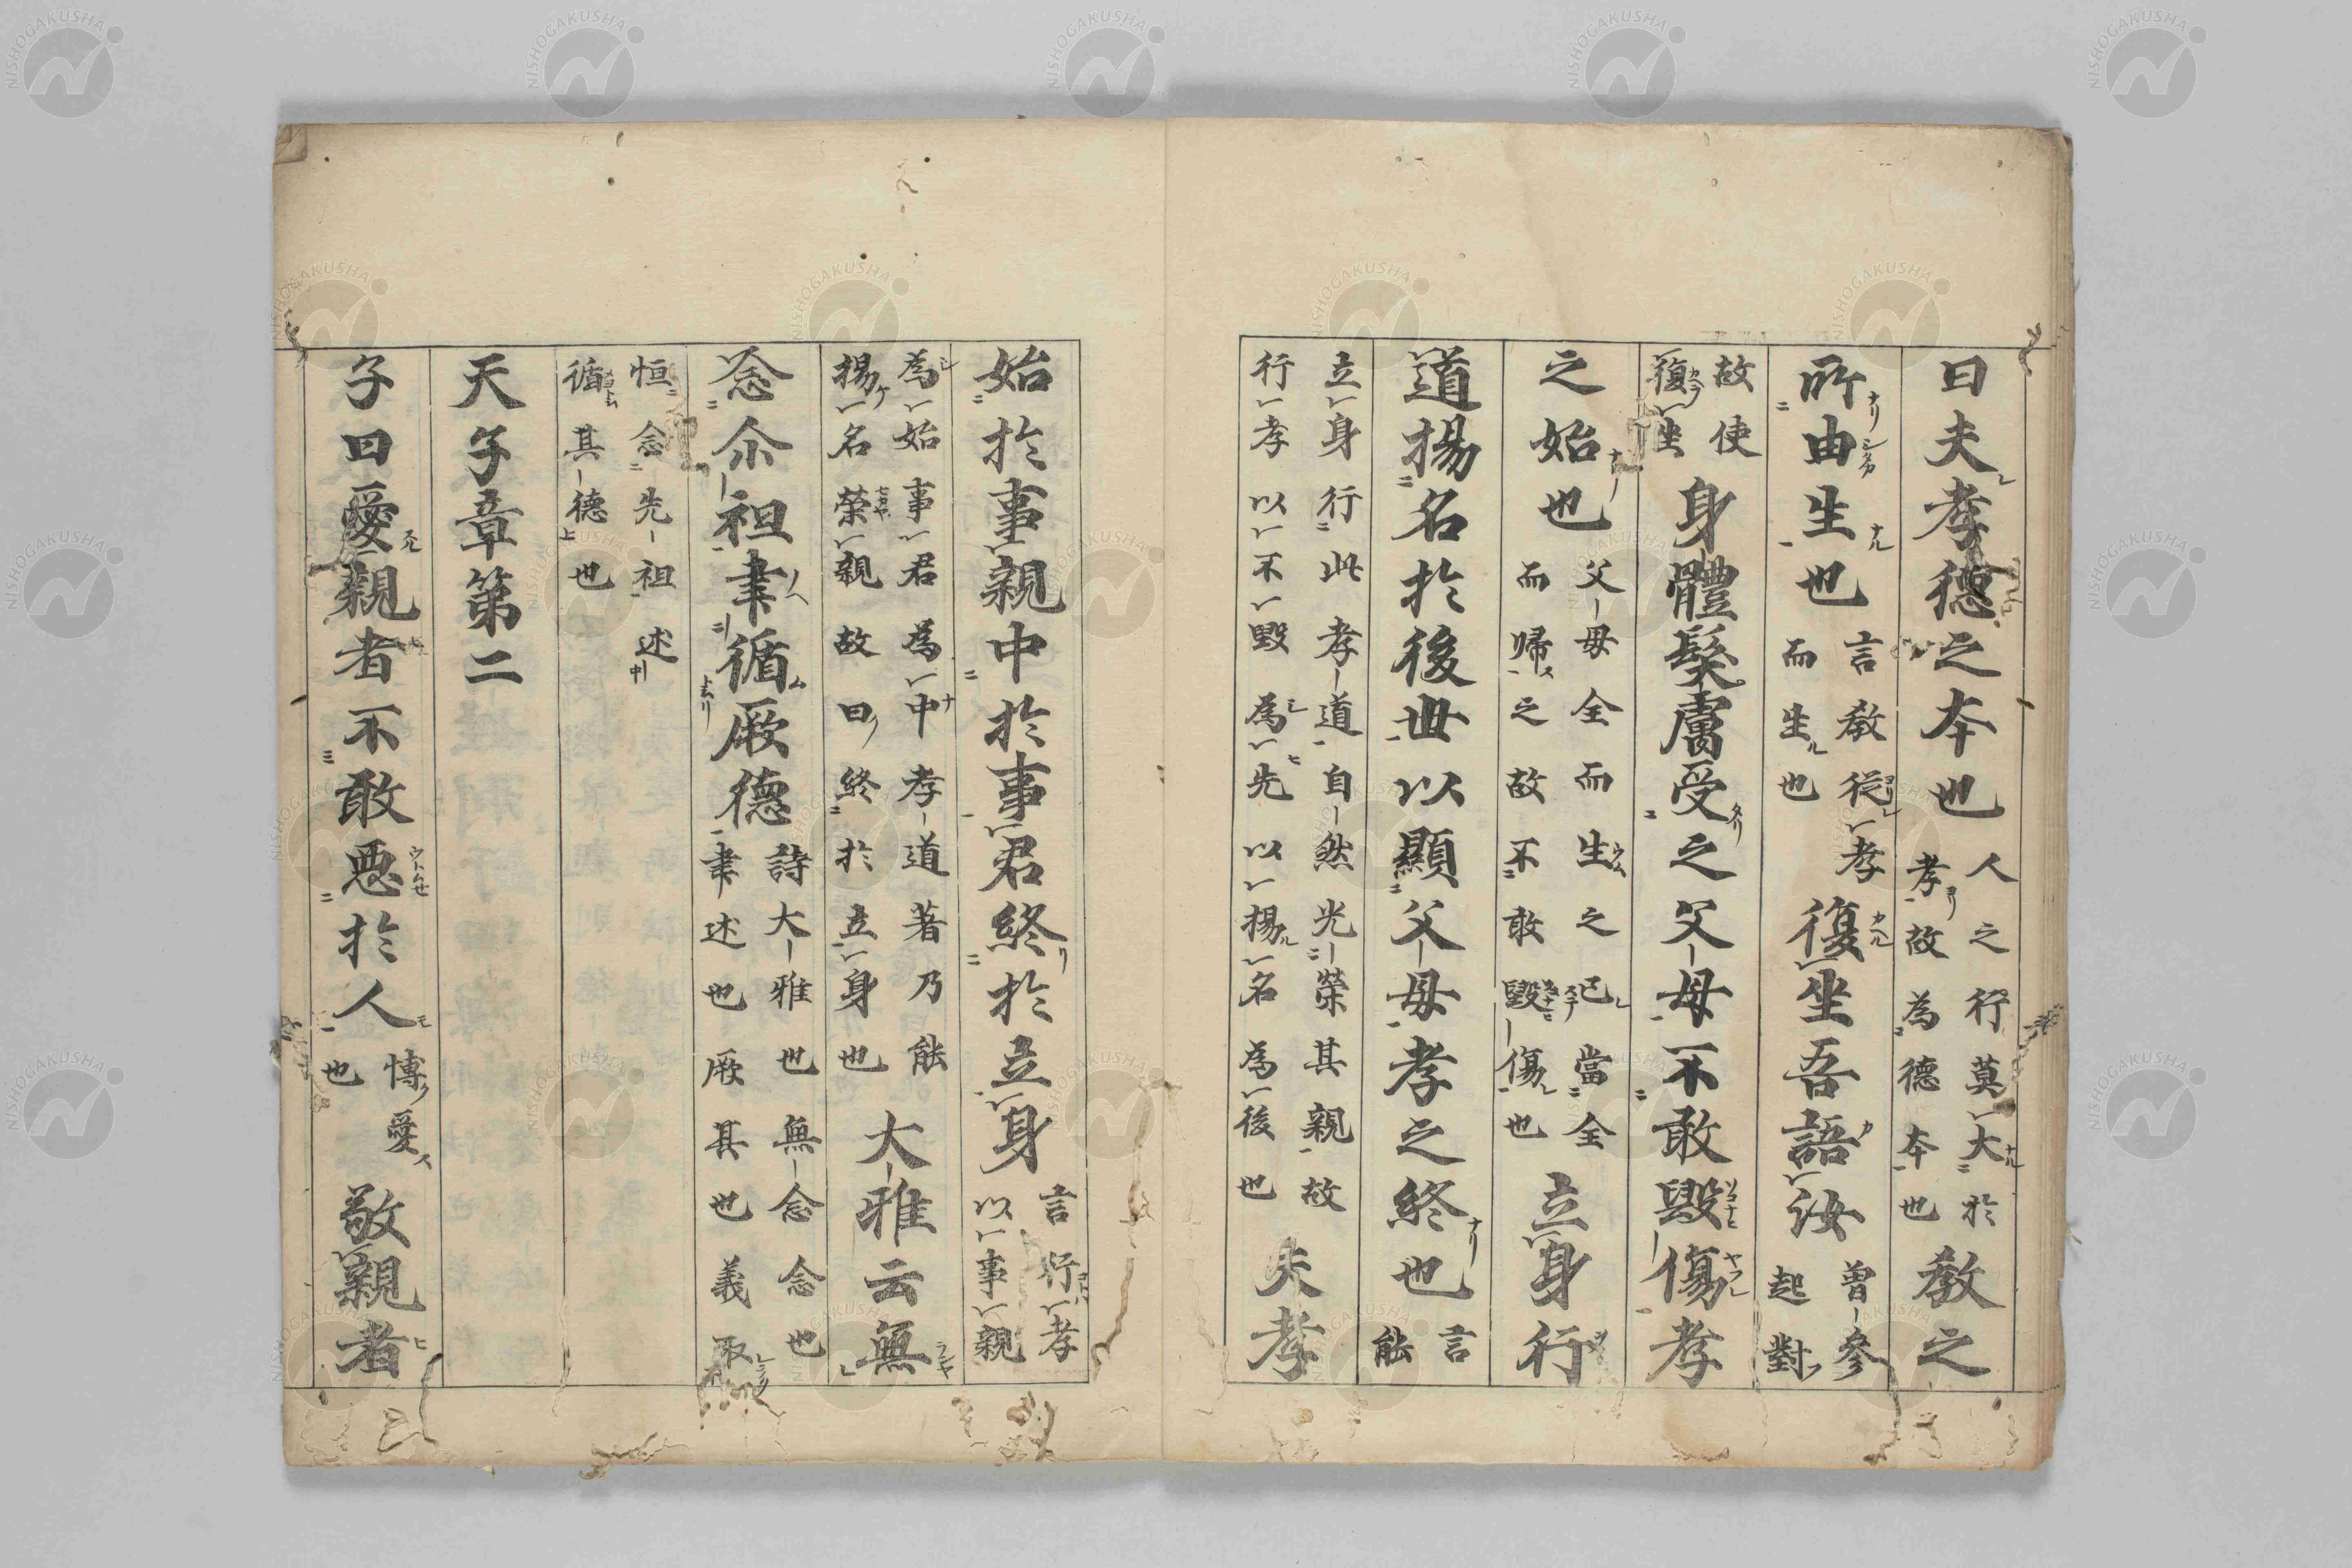 曰夫孝德之本也人之行莫大於孝故為德本也教之
所由生也言教從孝而生也復坐吾語汝曽參起對
故使復坐身體髮膚受之父母不敢毀傷孝
之始也父母全而生之已當全而歸之故不敢毀傷也立身行
道揚名於後世以顯父母孝之終也言能
立身行此孝道自然光榮其親故行孝以不毀為先以揚名為後也夫孝
始於事親中於事君終於立身言行孝以事親
為始事君為中孝道著乃能揚名榮親故曰終於立身也大雅云無
念尒祖聿循厥德詩大雅也無念念也聿述也厥其也義取
恒念先祖述循其德也
天子章第二
子曰愛親者不敢惡於人博愛也敬親者
NISHOGAKUSHA